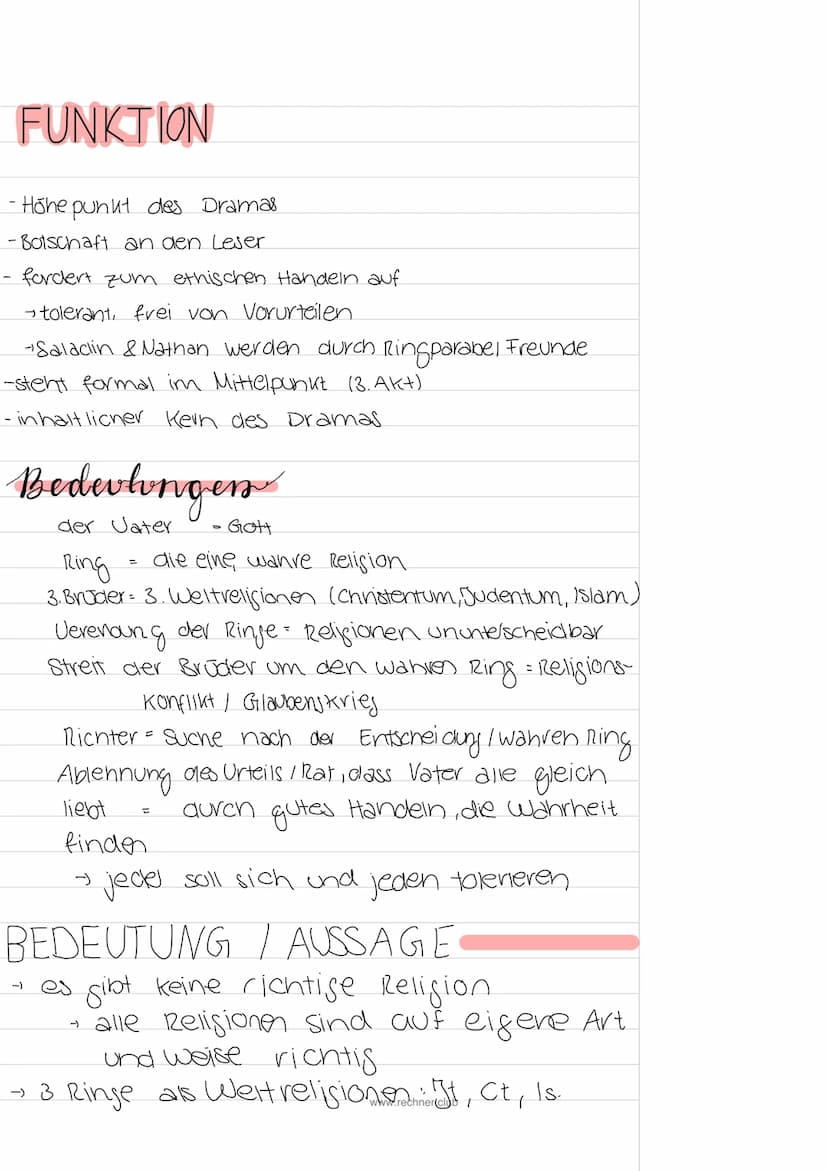 FUNKTION
- Höhepunkt des Dramas
- Botschaft an den Leser
- fordert zum ethischen Handeln auf
→ tolerant, frei von Vorurteilen
→ Saladin & Nathan werden durch Ringparabel Freunde
- steht formal im Mittelpunkt (3. Akt)
- inhaltlicher Kern des Dramas
Bedeutungen
der Vater = Gott
Ring = die eine wahre Religion
3. Brüder = 3. Weltreligionen (Christentum, Judentum, Islam)
Vererbung der Ringe = Religionen ununterscheidbar
Streit der Brüder um den wahren Ring = Religions-
konflikt / Glaubenskrieg
Richter = Suche nach der Entscheidung / wahren Ring
Ablehnung des Urteils / Rat, dass Vater alle gleich
liebt = durch gutes Handeln, die Wahrheit
finden
→ jeder soll sich und jeden tolerieren
BEDEUTUNG / AUSSAGE
→ es gibt keine richtige Religion
→ alle Religionen sind auf eigene Art
und Weise richtig
→ 3 Ringe als Weltreligionen: Jt, Ct, Is.
www.rechner.club